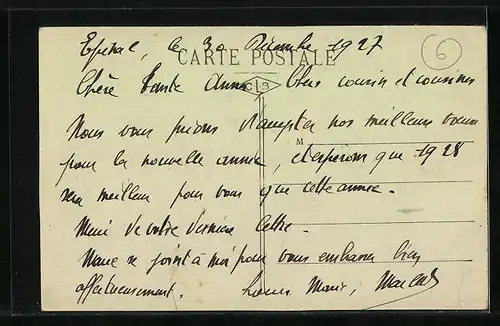 Epinal, le 30 Décembre 1927
CARTE POSTALE
Chère Tante Anna Chers cousin et cousines
C L B
Nous vous prions d'accepter nos meilleurs voeux
M
pour la nouvelle année, et espérons que 1928
sera meilleur pour vous que cette année.
Merci de votre dernière lettre.
se joint à moi pour vous embrasser bien
affectueusement.
6